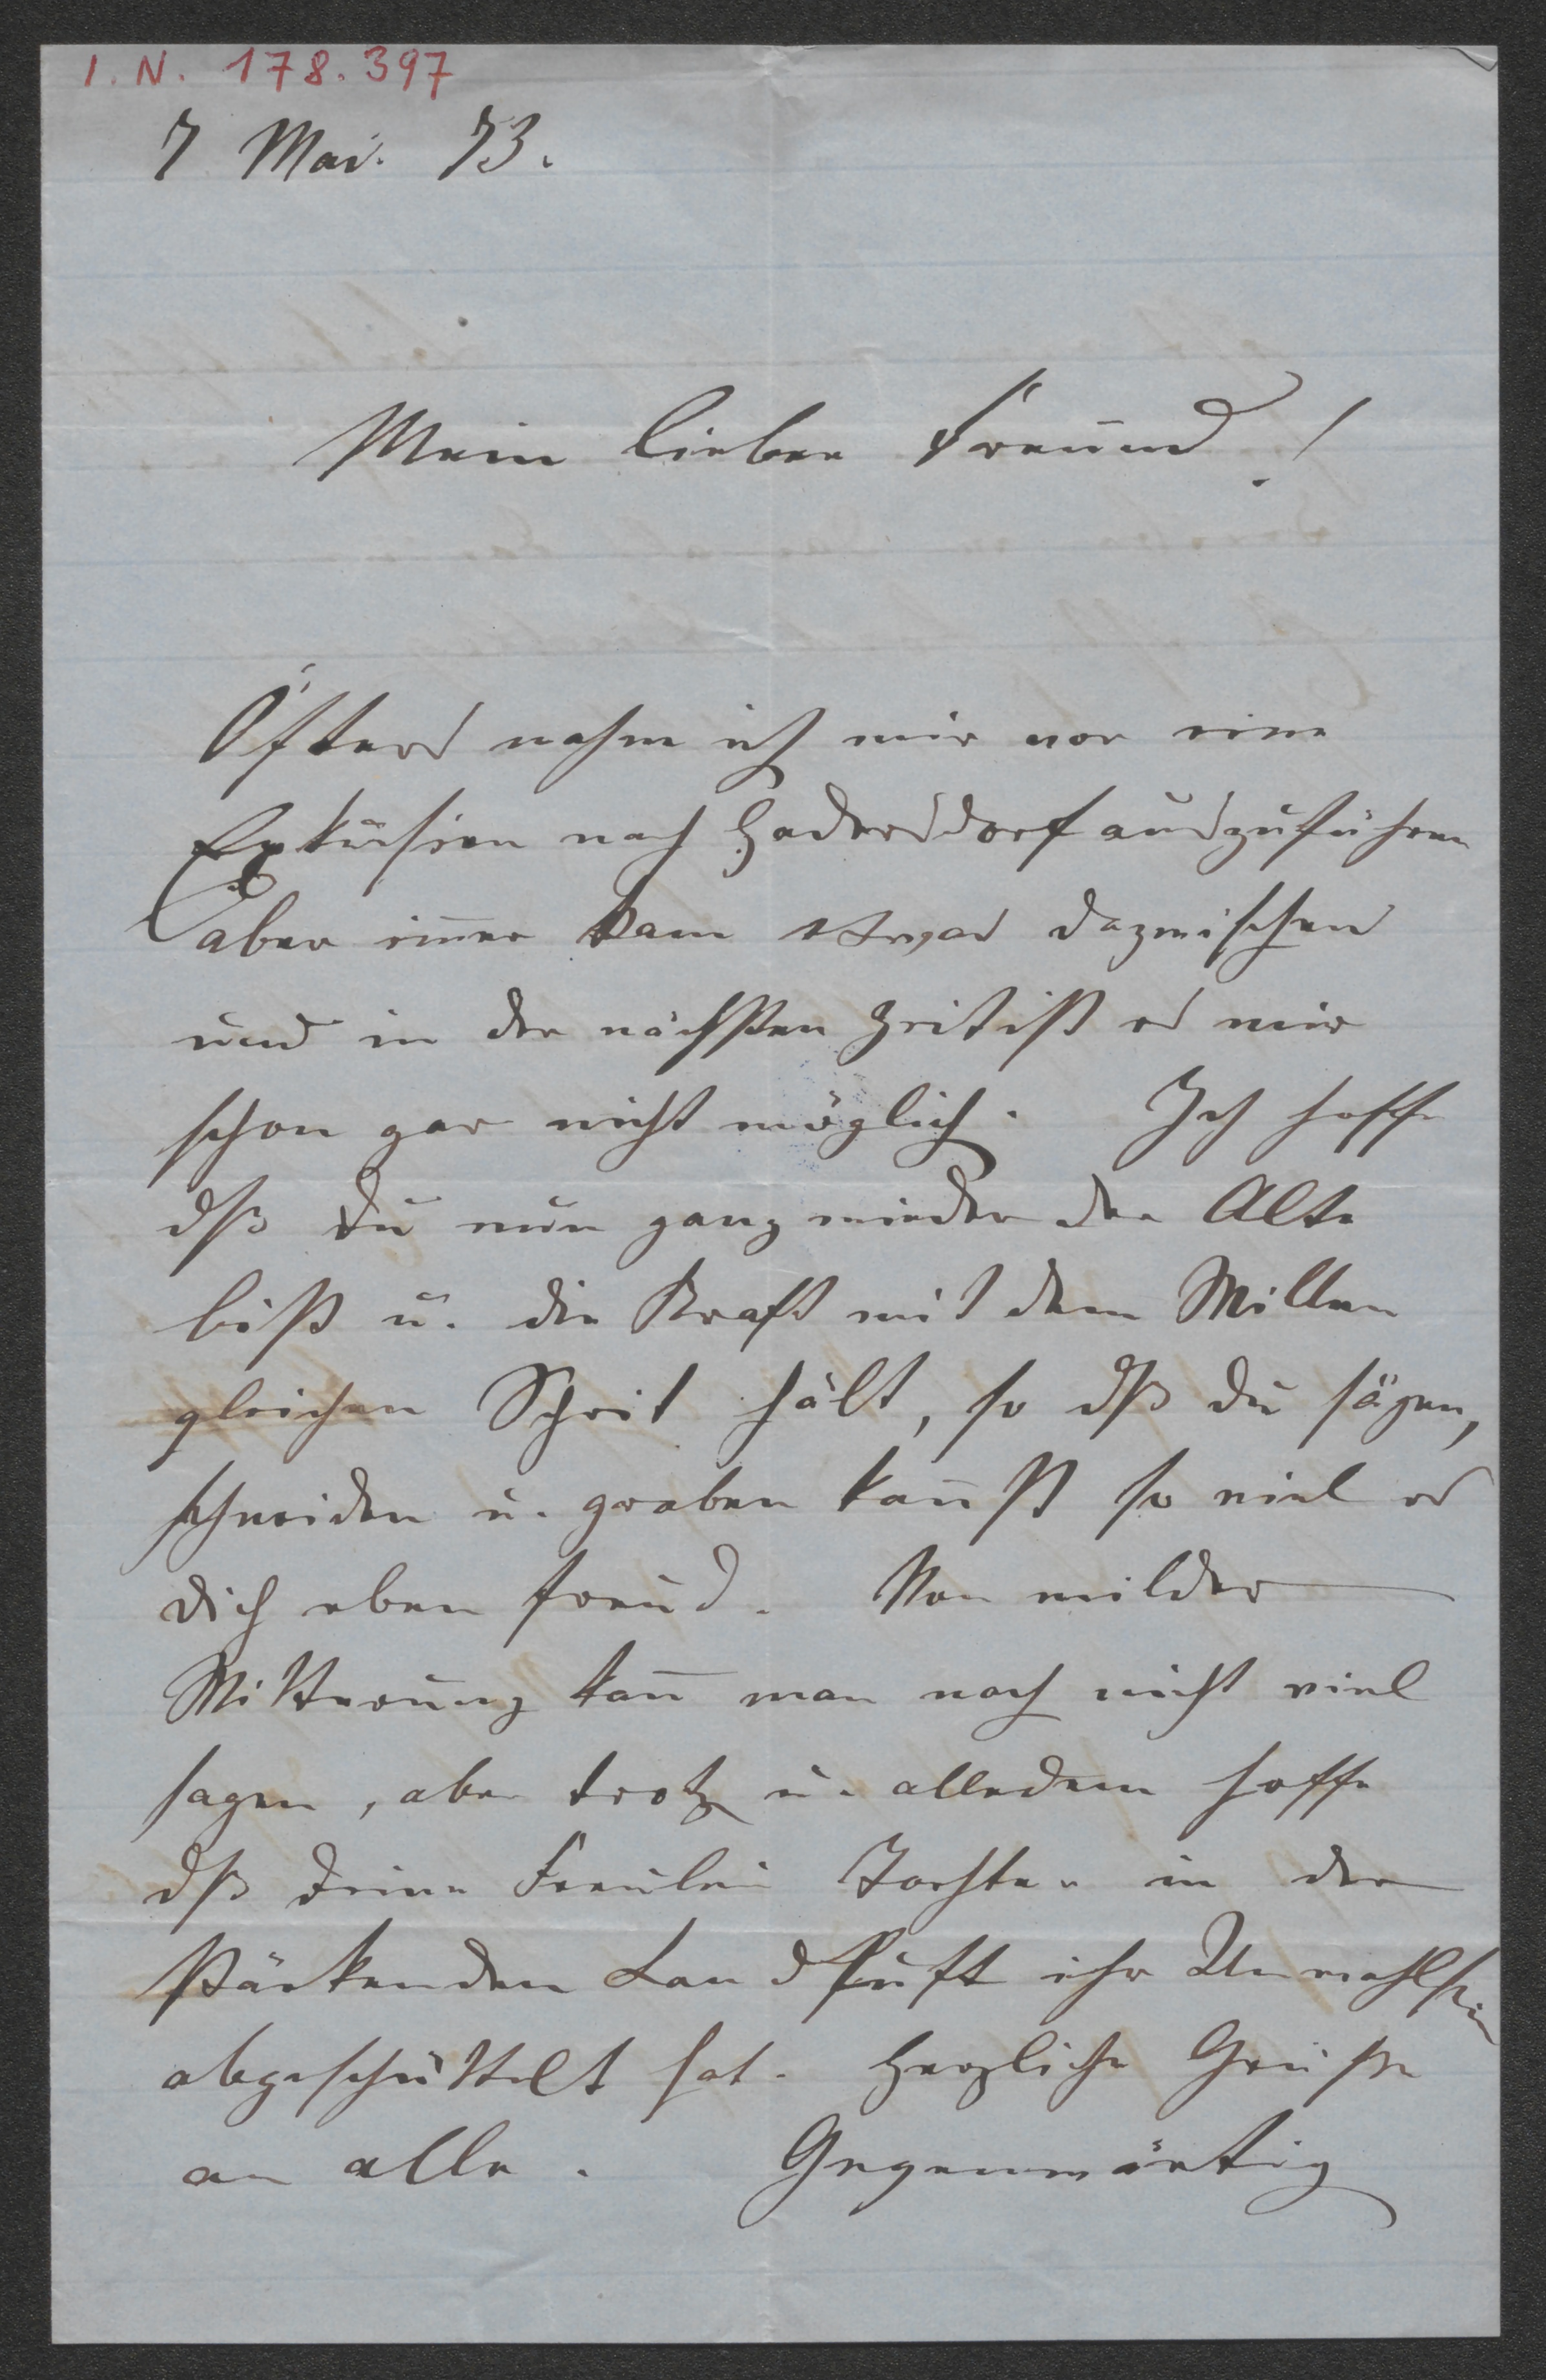 I. N. 178.397
7 Mai. 73.
Mein lieber Freund!
Öfters nahm ich mir vor eine
Exkursion nach Hadersdorf auszuführen
aber im̄er kam etwas dazwischen
und in der nächsten Zeit ist es mir
schon gar nicht möglich. Ich hoffe
dß Du nun ganz wieder der Alte
bist u. die Kraft mit dem Willen
gleichen Schrit hält, so dß Du sägen,
schneiden u. graben kan̄st so viel es
Dich eben freud. Von milder
Witterung kan̄ man noch nicht viel
sagen, aber trotz u. alledem hoffe
dß Deine Freulein Tochter in der
stärkenden Landluft ihr Unwohlsein
abgeschüttelt hat. Herzliche Grüße
an alle. Gegenwärtig